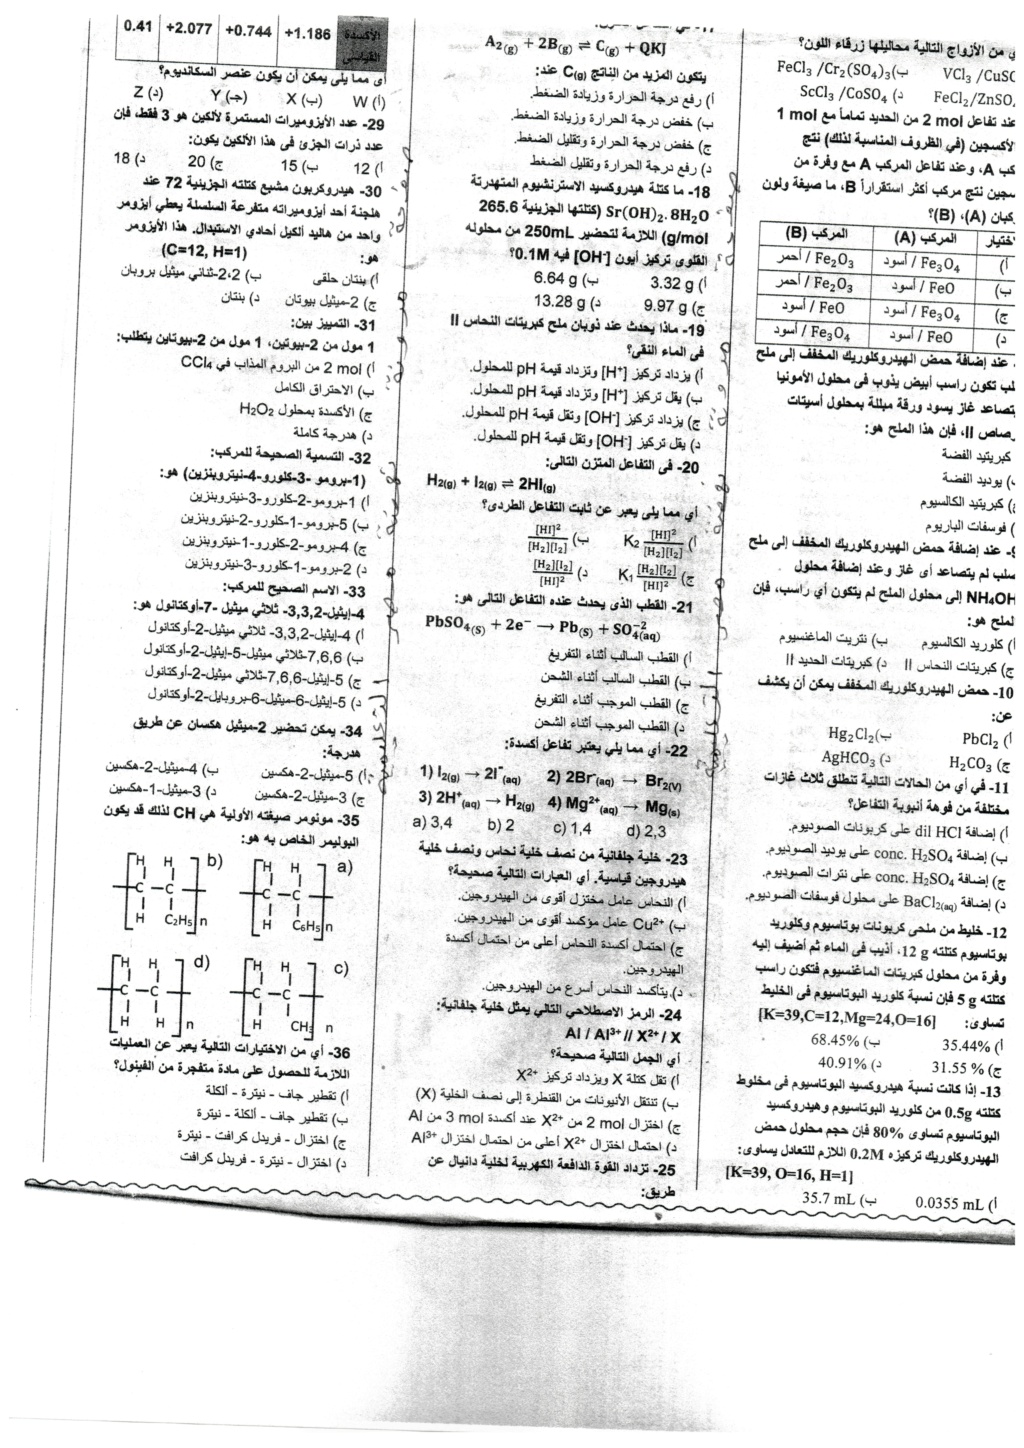 ي من الأزواج التالية محاليلها زرقاء اللون؟
VCl3 /CuSO
ب) FeCl3 /Cr2(SO4)3
FeCl2/ZnSO4
د) ScCl3 /CoSO4
عند تفاعل 2 mol من الحديد تماماً مع 1 mol
لأكسجين (في الظروف المناسبة لذلك) نتج
كب A، وعند تفاعل المركب A مع وفرة من
سجين نتج مركب أكثر استقراراً B، ما صيغة ولون
كبان (A)، (B)؟
ختيار | المركب (A) | المركب (B)
أ) | Fe3O4 / أسود | Fe2O3 / أحمر
ب) | FeO / أسود | Fe2O3 / أحمر
ج) | Fe3O4 / أسود | FeO / أسود
د) | FeO / أسود | Fe3O4 / أسود
عند إضافة حمض الهيدروكلوريك المخفف إلى ملح
لب تكون راسب أبيض يذوب فى محلول الأمونيا
يتصاعد غاز يسود ورقة مبللة بمحلول أسيتات
رصاص II، فإن هذا الملح هو:
كبريتيد الفضة
ب) يوديد الفضة
ج) كبريتيد الكالسيوم
) فوسفات الباريوم
9- عند إضافة حمض الهيدروكلوريك المخفف إلى ملح
صلب لم يتصاعد أى غاز وعند إضافة محلول
NH4OH إلى محلول الملح لم يتكون أي راسب، فإن
لملح هو:
أ) كلوريد الكالسيوم ب) نتريت الماغنسيوم
ج) كبريتات النحاس II د) كبريتات الحديد II
10- حمض الهيدروكلوريك المخفف يمكن أن يكشف
عن:
أ) PbCl2 ب) Hg2Cl2
ج) H2CO3 د) AgHCO3
11- في أي من الحالات التالية تنطلق ثلاث غازات
مختلفة من فوهة أنبوبة التفاعل؟
أ) إضافة dil HCl على كربونات الصوديوم.
ب) إضافة conc. H2SO4 على يوديد الصوديوم.
ج) إضافة conc. H2SO4 على نترات الصوديوم.
د) إضافة BaCl2(aq) على محلول فوسفات الصوديوم.
12- خليط من ملحى كربونات بوتاسيوم وكلوريد
بوتاسيوم كتلته 12 g، أذيب فى الماء ثم أضيف إليه
وفرة من محلول كبريتات الماغنسيوم فتكون راسب
كتلته 5 g فإن نسبة كلوريد البوتاسيوم فى الخليط
تساوى: [K=39,C=12,Mg=24,O=16]
أ) 35.44% ب) 68.45%
ج) 31.55 % د) 40.91%
13- إذا كانت نسبة هيدروكسيد البوتاسيوم فى مخلوط
كتلته 0.5g من كلوريد البوتاسيوم وهيدروكسيد
البوتاسيوم تساوى 80% فإن حجم محلول حمض
الهيدروكلوريك تركيزه 0.2M اللازم للتعادل يساوى:
[K=39, O=16, H=1]
أ) 0.0355 mL ب) 35.7 mL
A2(g) + 2B(g) ⇌ C(g) + QKJ
يتكون المزيد من الناتج C(g) عند:
أ) رفع درجة الحرارة وزيادة الضغط.
ب) خفض درجة الحرارة وزيادة الضغط.
ج) خفض درجة الحرارة وتقليل الضغط.
د) رفع درجة الحرارة وتقليل الضغط
18- ما كتلة هيدروكسيد الاسترنشيوم المتهدرتة
Sr(OH)2. 8H2O (كتلتها الجزيئية 265.6
g/mol) اللازمة لتحضير 250mL من محلوله
القلوى تركيز أيون [OH-] فيه 0.1M؟
أ) 3.32 g ب) 6.64 g
ج) 9.97 g د) 13.28 g
19- ماذا يحدث عند ذوبان ملح كبريتات النحاس II
فى الماء النقى؟
أ) يزداد تركيز [H+] وتزداد قيمة pH للمحلول.
ب) يقل تركيز [H+] وتزداد قيمة pH للمحلول.
ج) يزداد تركيز [OH-] وتقل قيمة pH للمحلول.
د) يقل تركيز [OH-] وتقل قيمة pH للمحلول.
20- فى التفاعل المتزن التالى:
H2(g) + I2(g) ⇌ 2HI(g)
أي مما يلى يعبر عن ثابت التفاعل الطردى؟
أ) [HI]2 / [H2][I2] K2 ب) [HI]2 / [H2][I2]
ج) [H2][I2] / [HI]2 K1 د) [H2][I2] / [HI]2
21- القطب الذى يحدث عنده التفاعل التالى هو:
PbSO4(S) + 2e− → Pb(S) + SO4(aq)−2
أ) القطب السالب أثناء التفريغ
ب) القطب السالب أثناء الشحن
ج) القطب الموجب أثناء التفريغ
د) القطب الموجب أثناء الشحن
22- أي مما يلي يعتبر تفاعل أكسدة:
1) I2(g) → 2I-(aq) 2) 2Br-(aq) → Br2(V)
3) 2H+(aq) → H2(g) 4) Mg2+(aq) → Mg(s)
a) 3,4 b) 2 c) 1,4 d) 2,3
23- خلية جلفانية من نصف خلية نحاس ونصف خلية
هيدروجين قياسية. أي العبارات التالية صحيحة؟
أ) النحاس عامل مختزل أقوى من الهيدروجين.
ب) Cu2+ عامل مؤكسد أقوى من الهيدروجين.
ج) احتمال أكسدة النحاس أعلى من احتمال أكسدة
الهيدروجين.
د) يتأكسد النحاس أسرع من الهيدروجين.
24- الرمز الاصطلاحي التالي يمثل خلية جلفانية:
Al / Al3+ // X2+ / X
أي الجمل التالية صحيحة؟
أ) تقل كتلة X ويزداد تركيز X2+
ب) تنتقل الأنيونات من القنطرة إلى نصف الخلية (X)
ج) اختزال 2 mol من X2+ عند أكسدة 3 mol من Al
د) احتمال اختزال X2+ أعلى من احتمال اختزال Al3+
25- تزداد القوة الدافعة الكهربية لخلية دانيال عن
طريق:
الأكسدة القياسى | +1.186 | +0.744 | +2.077 | 0.41
أى مما يلى يمكن أن يكون عنصر السكانديوم؟
(أ) W (ب) X (ج) Y (د) Z
29- عدد الأيزوميرات المستمرة لألكين هو 3 فقط، فإن
عدد ذرات الجزئ فى هذا الألكين يكون:
أ) 12 ب) 15 ج) 20 د) 18
30- هيدروكربون مشبع كتلته الجزيئية 72 عند
هلجنة أحد أيزوميراته متفرعة السلسلة يعطي أيزومر
واحد من هاليد ألكيل أحادي الاستبدال. هذا الأيزومر
هو: (C=12, H=1)
أ) بنتان حلقى ب) 2،2-ثنائي ميثيل بروبان
ج) 2-ميثيل بيوتان د) بنتان
31- التمييز بين:
1 مول من 2-بيوتين، 1 مول من 2-بيوتاين يتطلب:
أ) 2 mol من البروم المذاب في CCl4
ب) الاحتراق الكامل
ج) الأكسدة بمحلول H2O2
د) هدرجة كاملة
32- التسمية الصحيحة للمركب:
(1-برومو -3-كلورو-4-نيتروبنزين) هو:
أ) 1-برومو-2-كلورو-3-نيتروبنزين
ب) 5-برومو-1-كلورو-2-نيتروبنزين
ج) 4-برومو-2-كلورو-1-نيتروبنزين
د) 2-برومو-1-كلورو-3-نيتروبنزين
33- الاسم الصحيح للمركب:
4-إيثيل-3,3,2- ثلاثي ميثيل -7-أوكتانول هو:
أ) 4-إيثيل-3,3,2- ثلاثي ميثيل-2-أوكتانول
ب) 7,6,6-ثلاثي ميثيل-5-إيثيل-2-أوكتانول
ج) 5-إيثيل-7,6,6-ثلاثي ميثيل-2-أوكتانول
د) 5-إيثيل-6-ميثيل-6-بروبايل-2-أوكتانول
34- يمكن تحضير 2-ميثيل هكسان عن طريق
هدرجة:
أ) 5-ميثيل-2-هكسين ب) 4-ميثيل-2-هكسين
ج) 3-ميثيل-2-هكسين د) 3-ميثيل-1-هكسين
35- مونومر صيغته الأولية هي CH لذلك قد يكون
البوليمر الخاص به هو:
a) H H C – C H C6H5 n
b) H H C – C H C2H5 n
c) H H C – C H CH3 n
d) H H C – C H H n
36- أي من الاختيارات التالية يعبر عن العمليات
اللازمة للحصول على مادة متفجرة من الفينول؟
أ) تقطير جاف - نيترة - ألكلة
ب) تقطير جاف - ألكلة - نيترة
ج) اختزال - فريدل كرافت - نيترة
د) اختزال - نيترة - فريدل كرافت